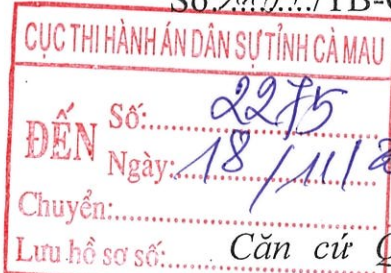 Số:...../TB-
CỤC THI HÀNH ÁN DÂN SỰ TỈNH CÀ MAU
ĐẾN
Số: 2275
Ngày: 18/11/2
Chuyển:
Lưu hồ sơ số:
Căn cứ